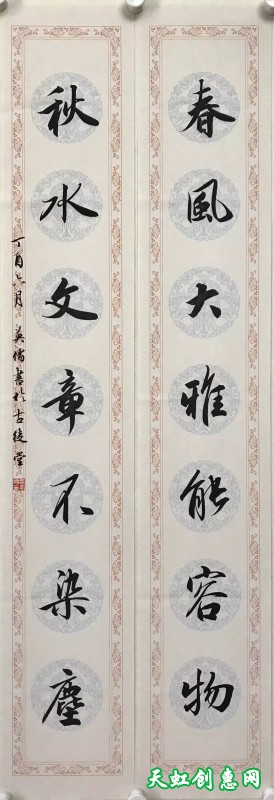 春風大雅能容物
秋水文章不染塵
丁酉六月 英儒書於古徒堂
天虹创惠网